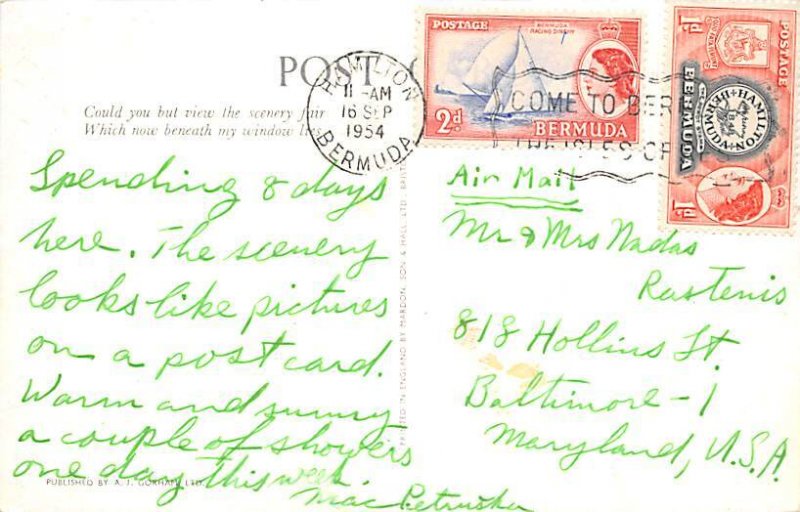 POST
Could you but view the scenery fair
Which now beneath my window lies
Spending 8 days
here. The scenery
looks like pictures
on a postcard.
Warm and sunny
a couple of showers
one day this week.
Mac Petruska
PUBLISHED BY A. J. GORHAM LTD.
PRINTED IN ENGLAND BY MARDON, SON & HALL LTD.
HAMILTON
11-AM
16 SEP
1954
BERMUDA
POSTAGE
BERMUDA
RACING DINGHY
2d
BERMUDA
COME TO BER
1d
POSTAGE
BERMUDA
HAMILTON
BERMUDA
1d
Air Mail
Mr & Mrs Nadas
Rastenis
818 Hollins St.
Baltimore-1
Maryland, U.S.A.